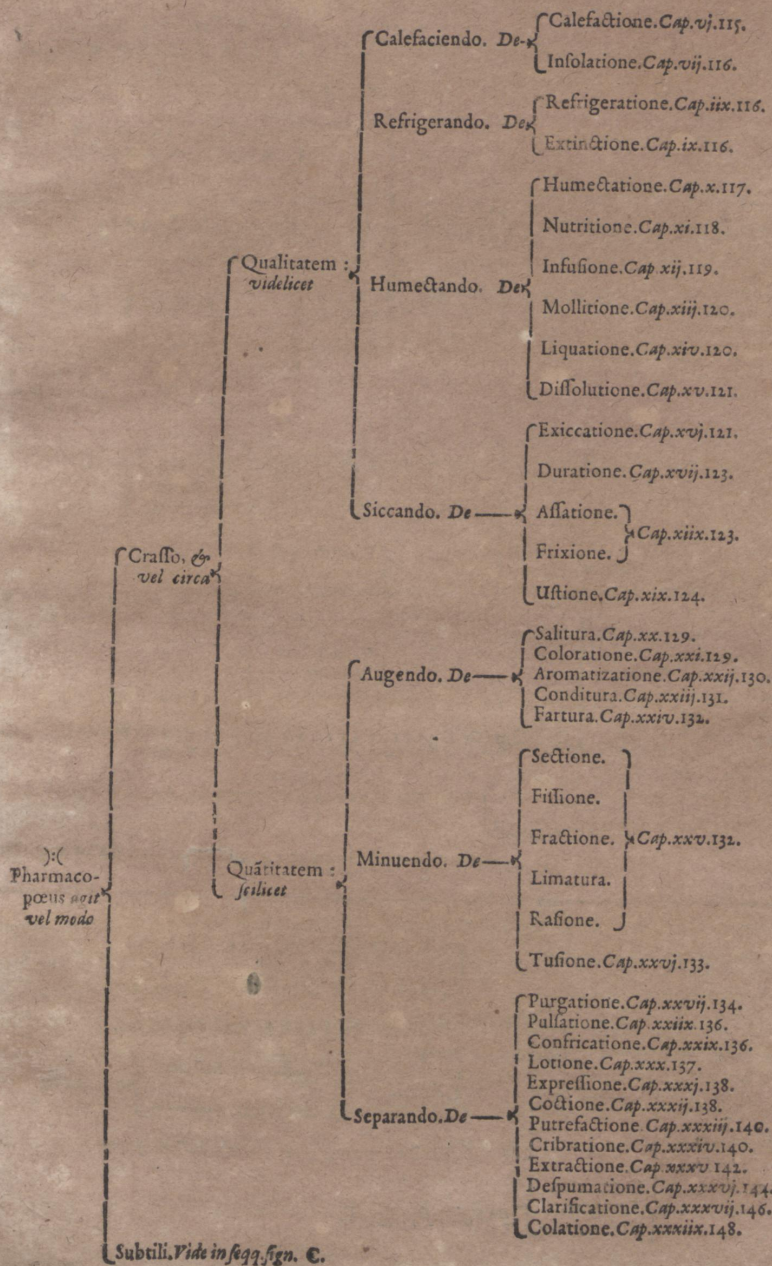 ):(
Pharmaco-
pœus agit
vel modo
Craſſo, &
vel circa
Qualitatem :
videlicet
Calefaciendo. De
Calefactione. Cap. vj. 115.
Inſolatione. Cap. vij. 116.
Refrigerando. De
Refrigeratione. Cap. iix. 116.
Extinctione. Cap. ix. 116.
Humectando. De
Humectatione. Cap. x. 117.
Nutritione. Cap. xi. 118.
Infuſione. Cap. xij. 119.
Mollitione. Cap. xiij. 120.
Liquatione. Cap. xiv. 120.
Diſſolutione. Cap. xv. 121.
Siccando. De
Exiccatione. Cap. xvj. 121.
Duratione. Cap. xvij. 123.
Aſſatione.
Frixione.
Cap. xiix. 123.
Uſtione. Cap. xix. 124.
Quãtitatem :
ſcilicet
Augendo. De
Salitura. Cap. xx. 129.
Coloratione. Cap. xxi. 129.
Aromatizatione. Cap. xxij. 130.
Conditura. Cap. xxiij. 131.
Fartura. Cap. xxiv. 132.
Minuendo. De
Sectione.
Fiſſione.
Fractione.
Limatura.
Raſione.
Cap. xxv. 132.
Tuſione. Cap. xxvj. 133.
Separando. De
Purgatione. Cap. xxvij. 134.
Pulſatione. Cap. xxiix. 136.
Confricatione. Cap. xxix. 136.
Lotione. Cap. xxx. 137.
Expreſſione. Cap. xxxj. 138.
Coctione. Cap. xxxij. 138.
Putrefactione. Cap. xxxiij. 140.
Cribratione. Cap. xxxiv. 140.
Extractione. Cap. xxxv. 142.
Deſpumatione. Cap. xxxvj. 144.
Clarificatione. Cap. xxxvij. 146.
Colatione. Cap. xxxiix. 148.
Subtili. Vide in ſeqq. ſign. C.